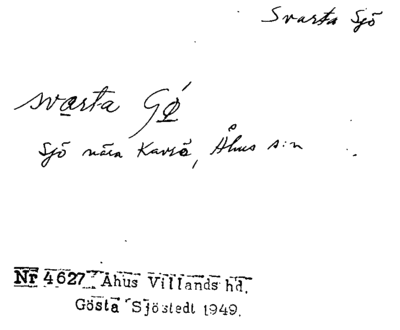 Svarta Sjö
svarta Gǿ
Sjö nära Kavrö, Åhus s:n
Nr 4627 Åhus Villands hd.
Gösta Sjöstedt 1949.